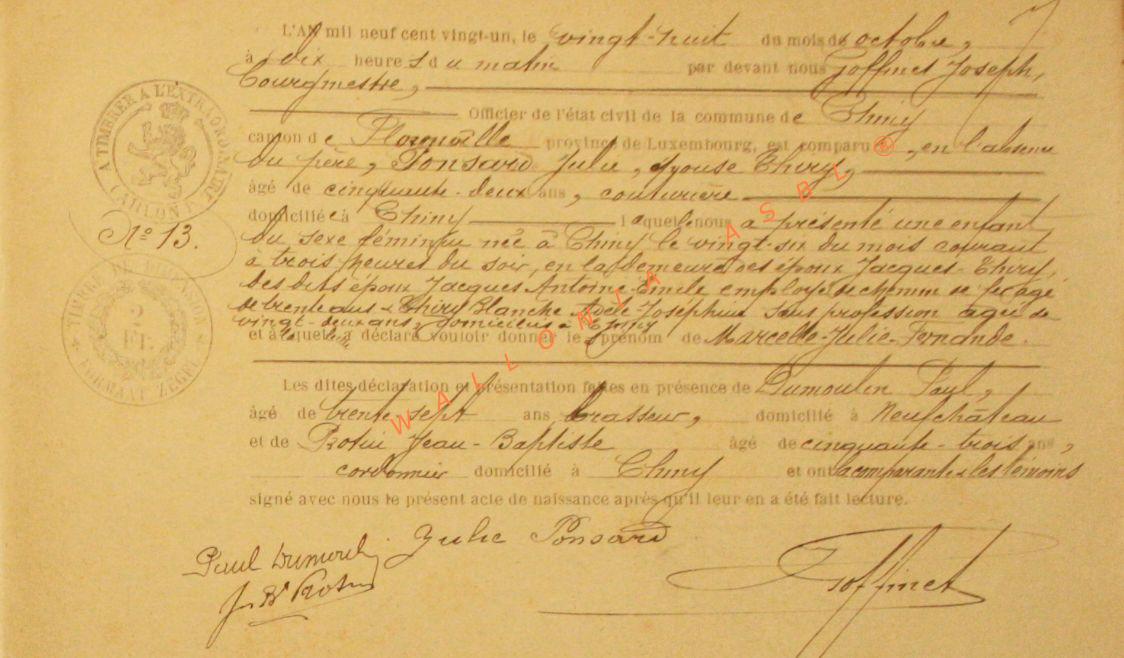 L'AN mil neuf cent vingt-un, le vingt-huit du mois de octobre,
à dix heures du matin par devant nous Goffinet Joseph,
Bourgmestre,
Officier de l'état civil de la commune de Chiny
canton de Florenville province de Luxembourg, est comparue, en l'absence
du père, Ponsard Julie, épouse Thiry,
âgé de cinquante-deux ans, couturière
domiciliée à Chiny laquelle nous a présenté une enfant
du sexe féminin née à Chiny le vingt-six du mois courant
à trois heures du soir, en la demeure des époux Jacques-Thiry,
des dits époux Jacques Antoine-Emile employé de chemin de fer âgé
de trente ans & Thiry Blanche Adèle-Joséphine sans profession agée de
vingt-deux ans, domiciliés à Chiny
et à laquelle a déclaré vouloir donner les prénom de Marcelle-Julie-Fernande.
Les dites déclaration et présentation faites en présence de Dumoulin Paul,
âgé de trente sept ans brasseur, domicilié à Neufchâteau
et de Rosiu Jean-Baptiste âgé de cinquante-trois ans,
cordonnier domicilié à Chiny et ont la comparante & les témoins
signé avec nous le présent acte de naissance après qu'il leur en a été fait lecture.
A TIMBRER A L'EXTRAORDINAIRE
CARLON
No 13.
TIMBRE DE DIMENSION
2
FR.
FORMAAT ZEGEL
WALLONIA ASBL
Paul Dumoulin
Julie Ponsard
Goffinet